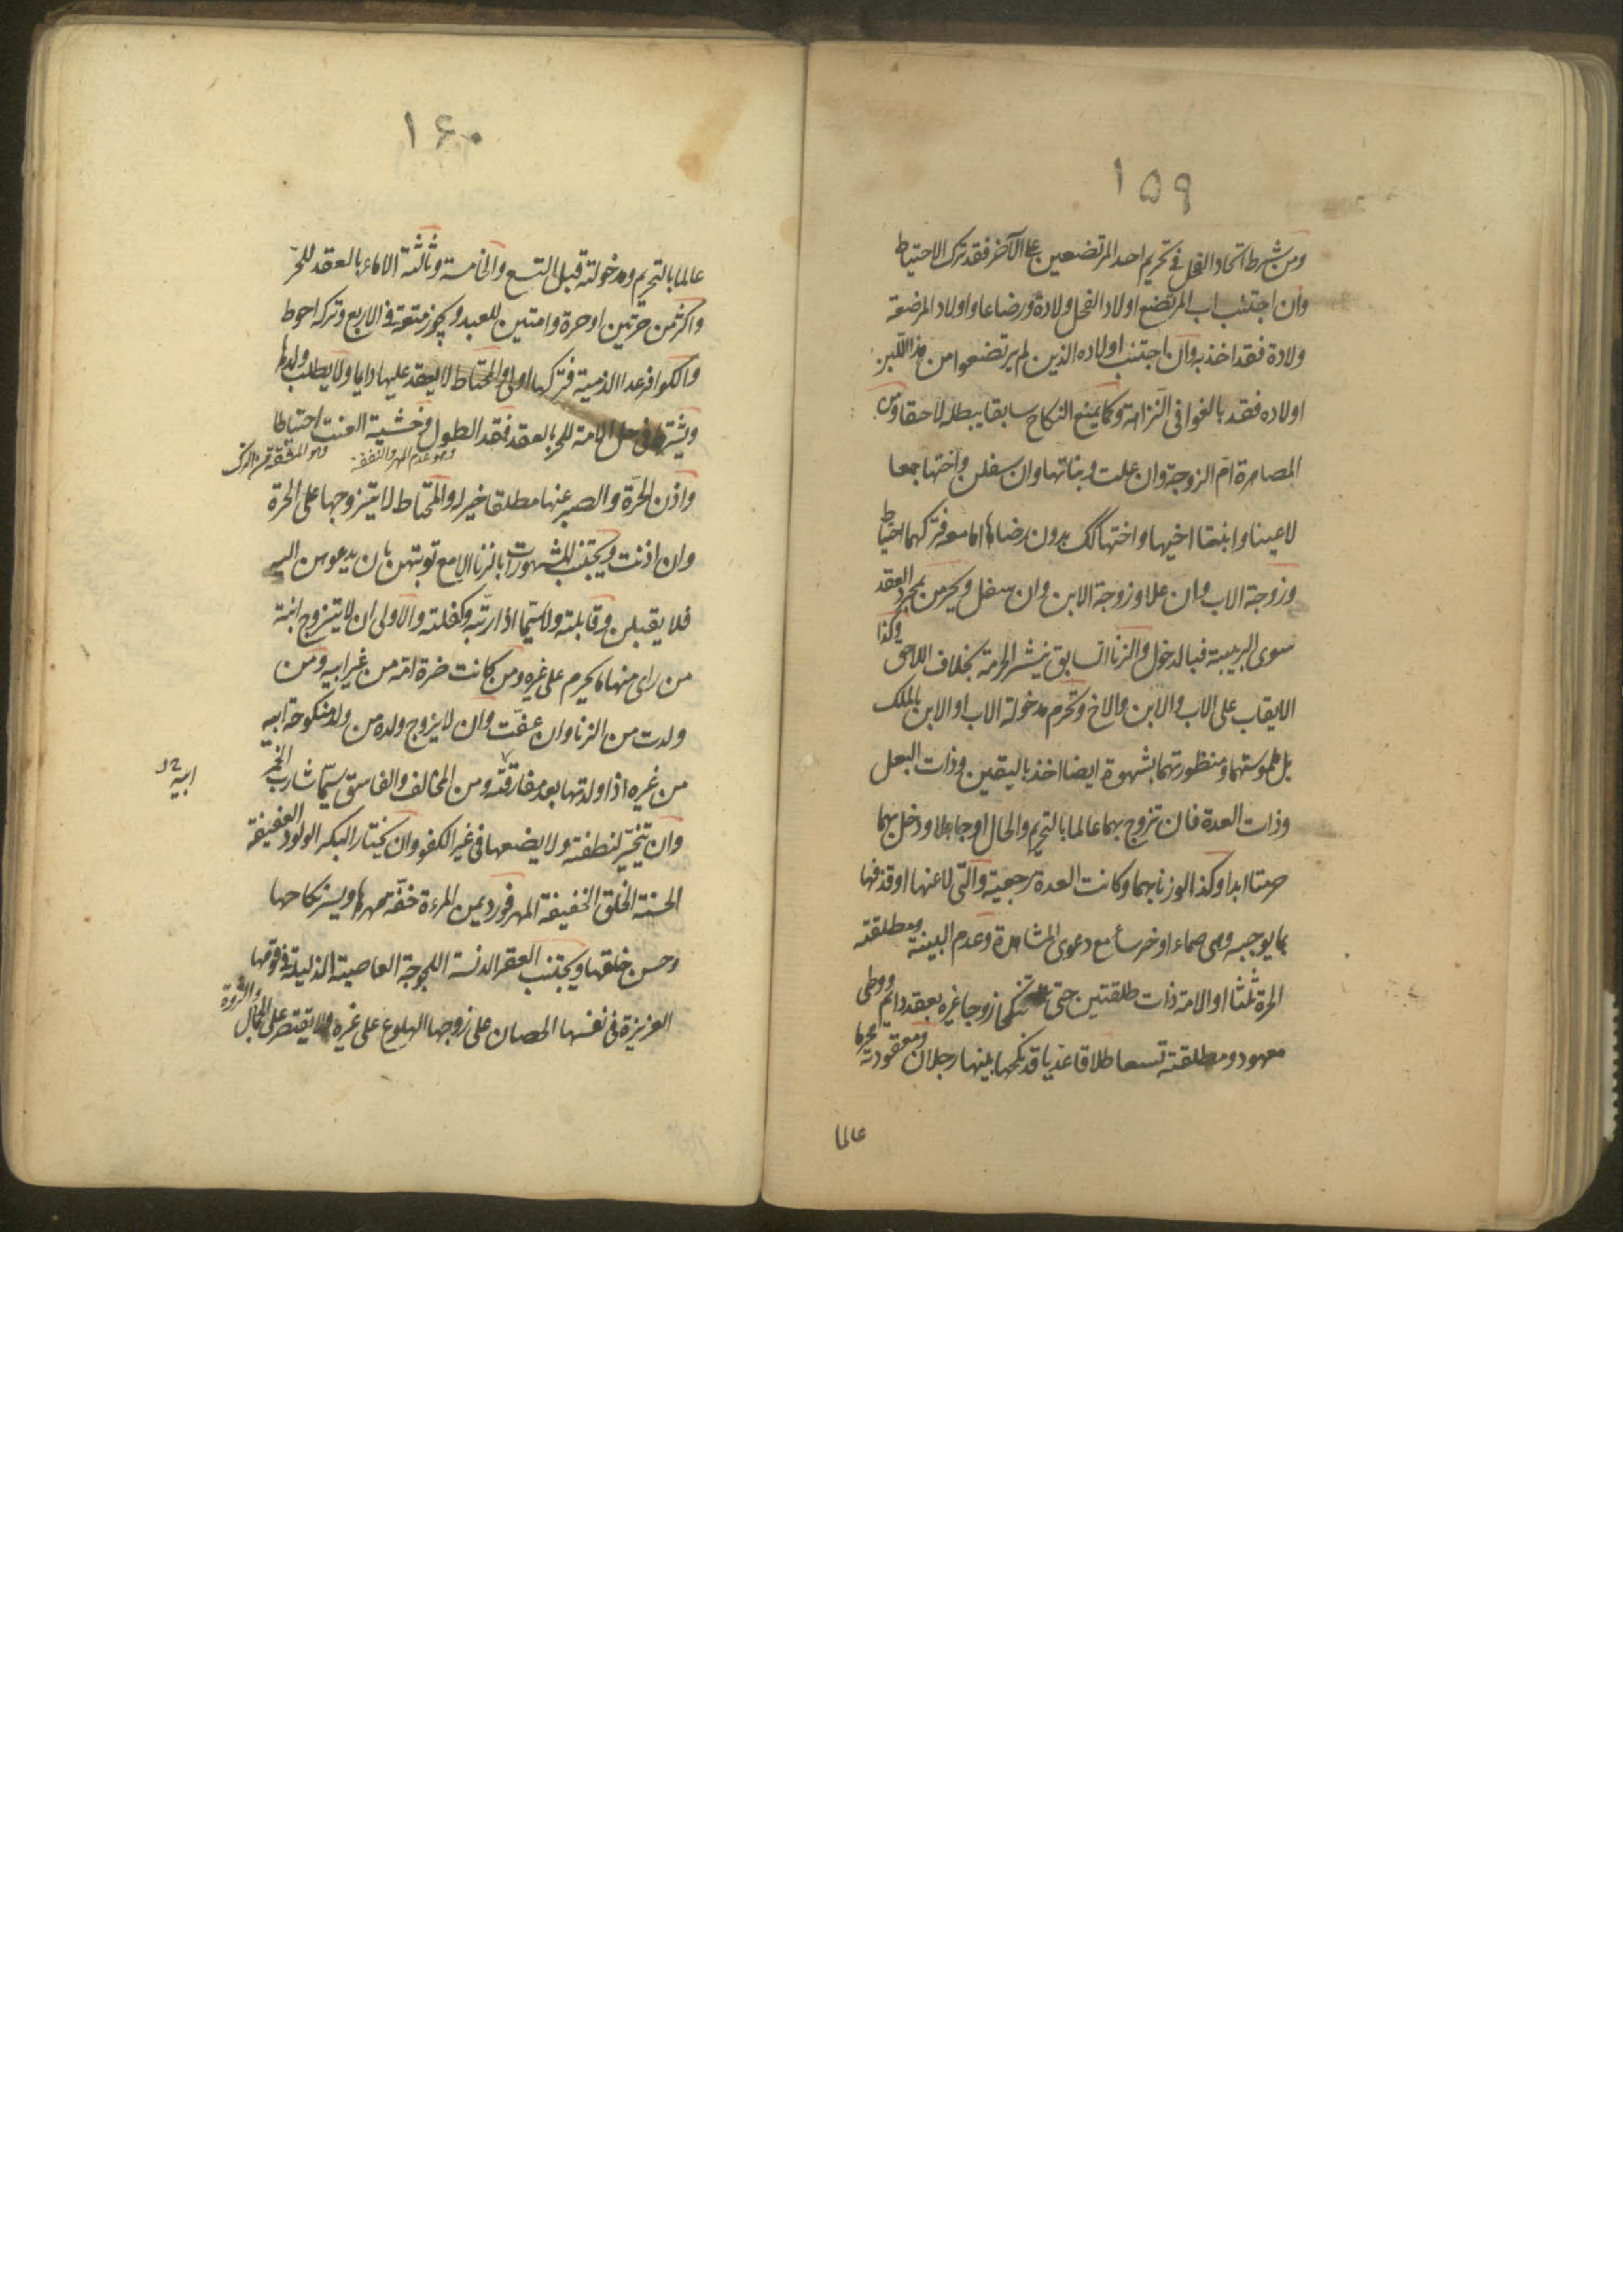 ۱۵۹
ومن شرط اتحاد الفحل فى تحريم احد المرتضعين على الآخر فقد ترك الاحتياط
وان اجتنب اب المرتضع اولاد الفحل ولادة ورضاعا واولاد المرضعة
ولادة فقد اخذ به وان اجتنب اولاده الذين لم يرتضعوا من هذا اللبن
اولاده فقد بالغوا فى النزاهة وكما يمنع النكاح سابقا يبطله لاحقا ومن
المصاهرة ام الزوجة وان علت وبناتها وان سفلن واختها جمعا
لا عينا وابنتا اخيها واختها كك بدون رضاها اما معه فتركهما احتياط
وزوجة الاب وان علا وزوجة الابن وان سفل ويحرمن بمجرد العقد
سوى الربيبة فبالدخول والزنا السابق ينشر الحرمة بخلاف اللاحق وكذا
الايقاب على الاب والابن والاخ وتحرم مدخولة الاب او الابن بالملك
بل ملموستهما ومنظورتهما بشهوة ايضا اخذ باليقين وذات البعل
وذات العدة فان تزوج بهما عالما بالتحريم والحال او جاهلا ودخل بهما
حرمتا ابدا وكذا لو زنا بهما وكانت العدة رجعية والتى لاعنها او قذفها
بما يوجبه وهى صماء او خرساء مع دعوى المشاهدة وعدم البينة ومطلقته
الحرة ثلثا او الامة ذات طلقتين حتى تنكحا زوجا غيره بعقد دائم ووطى
معهود ومطلقته تسعا طلاقا عديا قد نكحها بينها رجلان ومعقودته محرما
عالما
۱۶۰
عالما بالتحريم ومدخولته قبل التسع والخامسة وثالثة الاماء بالعقد للحر
واكثر من حرتين او حرة وامتين للعبد ويجوز متعة فى الاربع وتركه احوط
والكوافر عدا الذمية فتركها اولى والمحتاط لا يعقد عليها دايما ولا يطلب ولدها
ويشترط فى حل الامة للحر بالعقد فقد الطول وخشية العنت احتياطا
وهو عدم المهر والنفقة
وهو المشقة من الترك
واذن الحرة والصبر عنها مطلقا خير له والمحتاط لا يتزوجها على الحرة
وان اذنت ويجتنب المشهورات بالزنا الا مع توبتهن بان يدعوهن اليه
فلا يقبلن وقابلته ولا سيما اذا ربته وكفلته والاولى ان لا يتزوج ابنة
من راى منها ما يحرم على غيره ومن كانت ضرة امه من غير ابيه ومن
ولدت من الزنا وان عفت وان لا يزوج ولده من ولد منكوحة ابيه
من غيره اذا ولدتها بعد مفارقته ومن المخالف والفاسق سيما شارب الخمر
ابيه
وان يتخير لنطفته ولا يضعها فى غير الكفو وان يختار البكر الولود العفيفة
الحسنة الخلق الخفيفة المهر فورد يمن المرءة خفة مهرها ويسر نكاحها
وحسن خلقها ويجتنب العقر الدنسة اللجوجة العاصية الذليلة فى قومها
العزيزة فى نفسها الحصان على زوجها الهلوع على غيره ولا يقتصر على الجمال والثروة